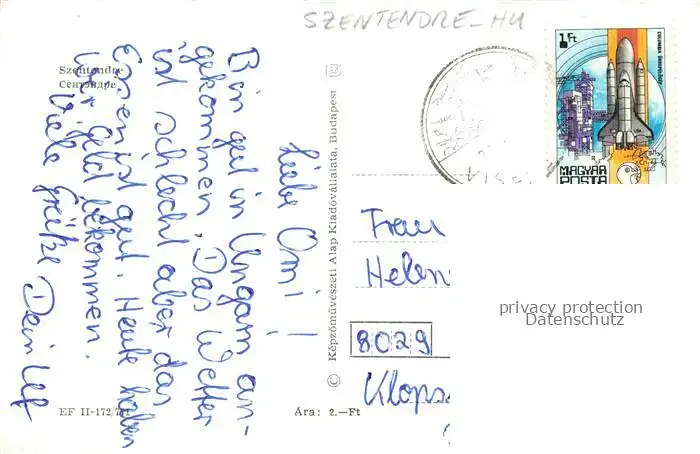 SZENTENDRE-HU
Szentendre
Сентэндре
Liebe Omi!
Bin gut in Ungarn an-
gekommen. Das Wetter
ist schlecht aber das
Essen ist gut. Heute haben
wir Geld bekommen.
Viele Grüße Dein Ulf
EF II-172/
Ára: 2.—Ft
© Képzőművészeti Alap Kiadóvállalata, Budapest
1 Ft
COLUMBIA
MAGYAR
POSTA
Frau
Helen
8029
Klops
privacy protection
Datenschutz